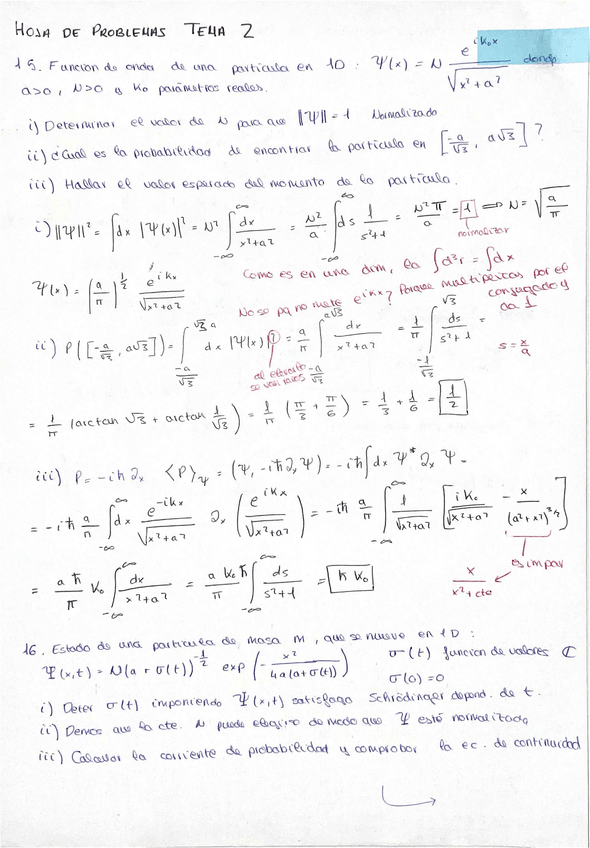 HOJA DE PROBLEMAS TEMA 2
15. Funcion de onda de una particula en 1D : Ψ(x) = N e^{ik₀x} / √(x²+a²) donde
a>0, N>0 y K₀ parámetros reales.
i) Determinar el valor de N para que ||Ψ|| = 1 Normalizado
ii) ¿Cual es la probabilidad de encontrar la particula en [-a/√3, a√3] ?
iii) Hallar el valor esperado del momento de la particula.
i) ||Ψ||² = ∫dx |Ψ(x)|² = N² ∫_{-∞}^{∞} dx/(x²+a²) = N²/a ∫_{-∞}^{∞} ds 1/(s²+1) = N²π/a = 1 ⟹ N = √(a/π)
normalizar
Ψ(x) = (a/π)^{1/2} e^{ikx}/√(x²+a²)
Como es en una dim, la ∫d³r = ∫dx
No se pa no mete e^{ikx}? Porque multiplicas por el
conjugado y
da 1
ii) P([-a/√3, a√3]) = ∫_{-a/√3}^{√3 a} dx |Ψ(x)|² = a/π ∫_{-a/√3}^{a√3} dx/(x²+a²) = 1/π ∫_{-1/√3}^{√3} ds/(s²+1) =
s = x/a
al elevarlo
se van
= 1/π (arctan √3 + arctan 1/√3) = 1/π (π/3 + π/6) = 1/3 + 1/6 = 1/2
iii) P = -iħ∂ₓ ⟨P⟩_Ψ = (Ψ, -iħ∂ₓΨ) = -iħ∫dx Ψ* ∂ₓ Ψ =
= -iħ a/π ∫_{-∞}^{∞} dx e^{-ikx}/√(x²+a²) ∂ₓ (e^{ikx}/√(x²+a²)) = -iħ a/π ∫_{-∞}^{∞} 1/√(x²+a²) [iK₀/√(x²+a²) - x/(a²+x²)^{3/2}]
es impar
x/(x²+cte)
= aħ/π K₀ ∫_{-∞}^{∞} dx/(x²+a²) = a K₀ ħ/π ∫_{-∞}^{∞} ds/(s²+1) = ħ K₀
16. Estado de una particula de masa m, que se mueve en 1D :
Ψ(x,t) = N(a+σ(t))^{-1/2} exp(-x²/(4a(a+σ(t)))) σ(t) funcion de valores ℂ
σ(0) = 0
i) Deter σ(t) imponiendo Ψ(x,t) satisfaga Schrödinger depend. de t.
ii) Demos que la cte. N puede elegirse de modo que Ψ esté normalizado
iii) Calcular la corriente de probabilidad y comprobar la ec. de continuidad